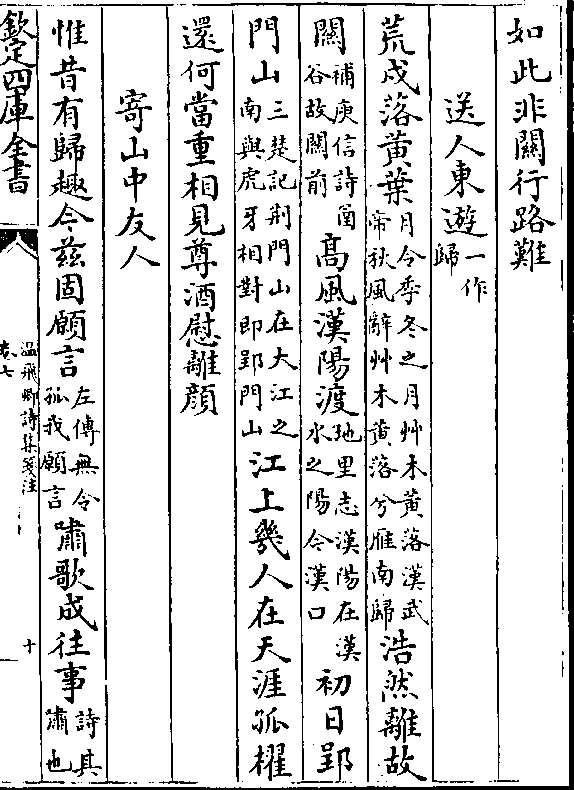 如此非關行路難
送人東遊一作歸
荒戍落黃葉月令季冬之月艸木黃落漢武帝秋風辭艸木黃落兮雁南歸浩然離故
關補庾信詩函谷故關前高風漢陽渡地里志漢陽在漢水之陽今漢口初日郢
門山三楚記荆門山在大江之南與虎牙相對即郢門山江上幾人在天涯孤櫂
還何當重相見尊酒慰離顔
寄山中友人
惟昔有歸趣今兹固願言左傳無令孤我願言嘯歌成往事詩其嘯也
欽定四庫全書
温飛卿詩集箋注
卷七
十